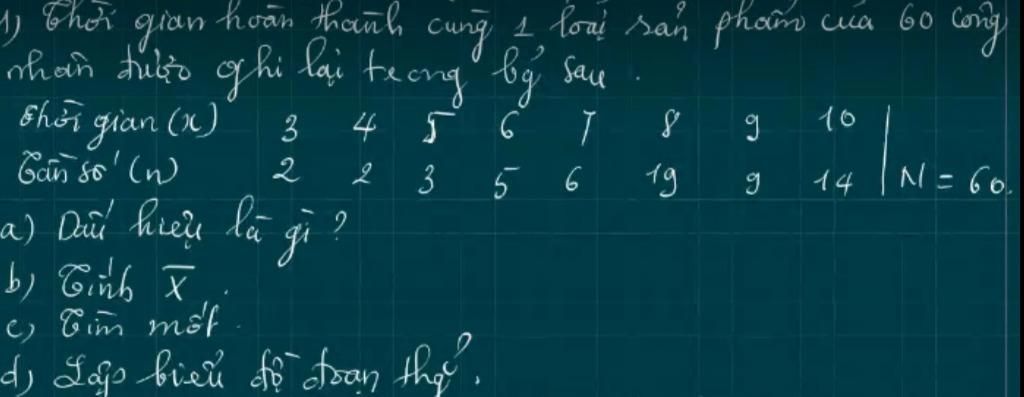 1) Thời gian hoàn thành cùng 1 loại sản phẩm của 60 công
nhân được ghi lại trong bảng sau.
Thời gian (x) 3 4 5 6 7 8 9 10
Tần số (n) 2 2 3 5 6 19 9 14 N = 60.
a) Dấu hiệu là gì?
b) Tính X̄.
c) Tìm mốt.
d) Lập biểu đồ đoạn thẳng.